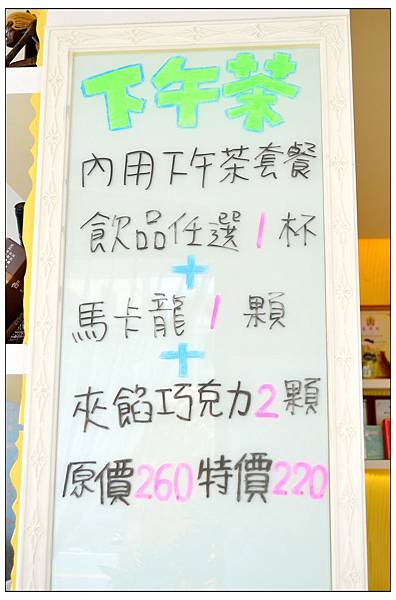 下午茶
內用下午茶套餐
飲品任選1杯
+
馬卡龍1顆
+
夾餡巧克力2顆
原價260特價220